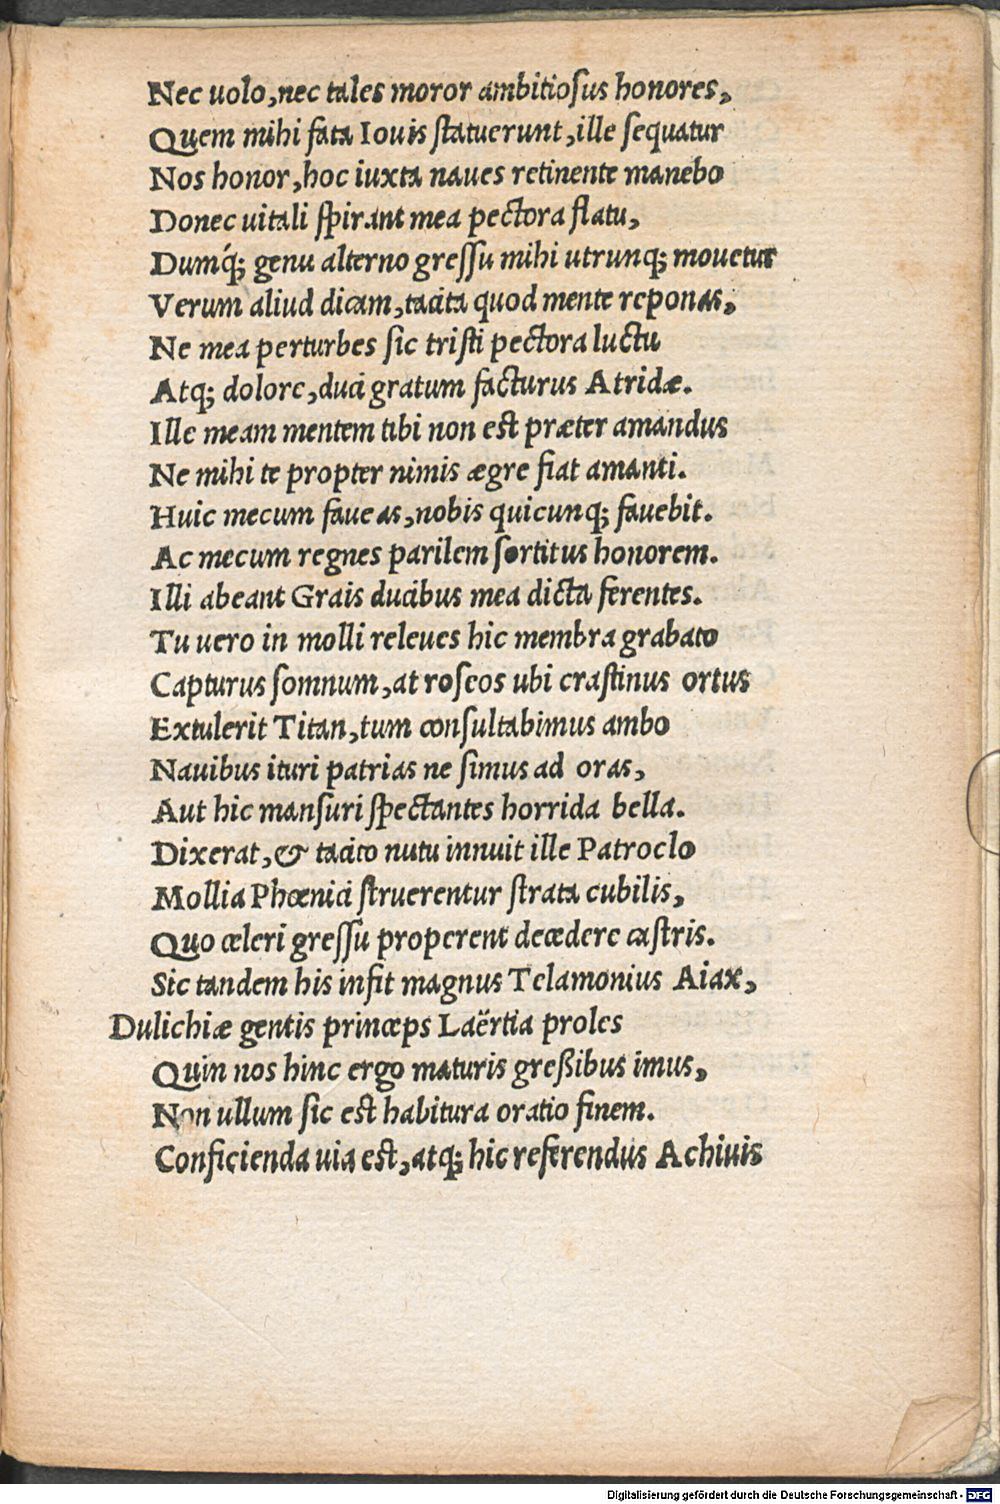 Nec uolo,nec tales moror ambitiosus honores,
Quem mihi fata Iouis statuerunt,ille sequatur
Nos honor,hoc iuxta naues retinente manebo
Donec uitali spirant mea pectora flatu,
Dumq́; genu alterno gressu mihi utrunq; mouetur
Verum aliud dicam,tacita quod mente reponas,
Ne mea perturbes sic tristi pectora luctu
Atq; dolore,duci gratum facturus Atridæ.
Ille meam mentem tibi non est præter amandus
Ne mihi te propter nimis ægre fiat amanti.
Huic mecum faueas,nobis quicunq; fauebit.
Ac mecum regnes parilem sortitus honorem.
Illi abeant Grais ducibus mea dicta ferentes.
Tu uero in molli releues hic membra grabato
Capturus somnum,at roseos ubi crastinus ortus
Extulerit Titan,tum consultabimus ambo
Nauibus ituri patrias ne simus ad oras,
Aut hic mansuri spectantes horrida bella.
Dixerat,& tacito nutu innuit ille Patroclo
Mollia Phœnici struerentur strata cubilis,
Quo celeri gressu properent decedere castris.
Sic tandem his infit magnus Telamonius Aiax,
Dulichiæ gentis princeps Laërtia proles
Quin nos hinc ergo maturis greßibus imus,
Non ullum sic est habitura oratio finem.
Conficienda uia est,atq; hic referendus Achiuis
Digitalisierung gefördert durch die Deutsche Forschungsgemeinschaft - DFG